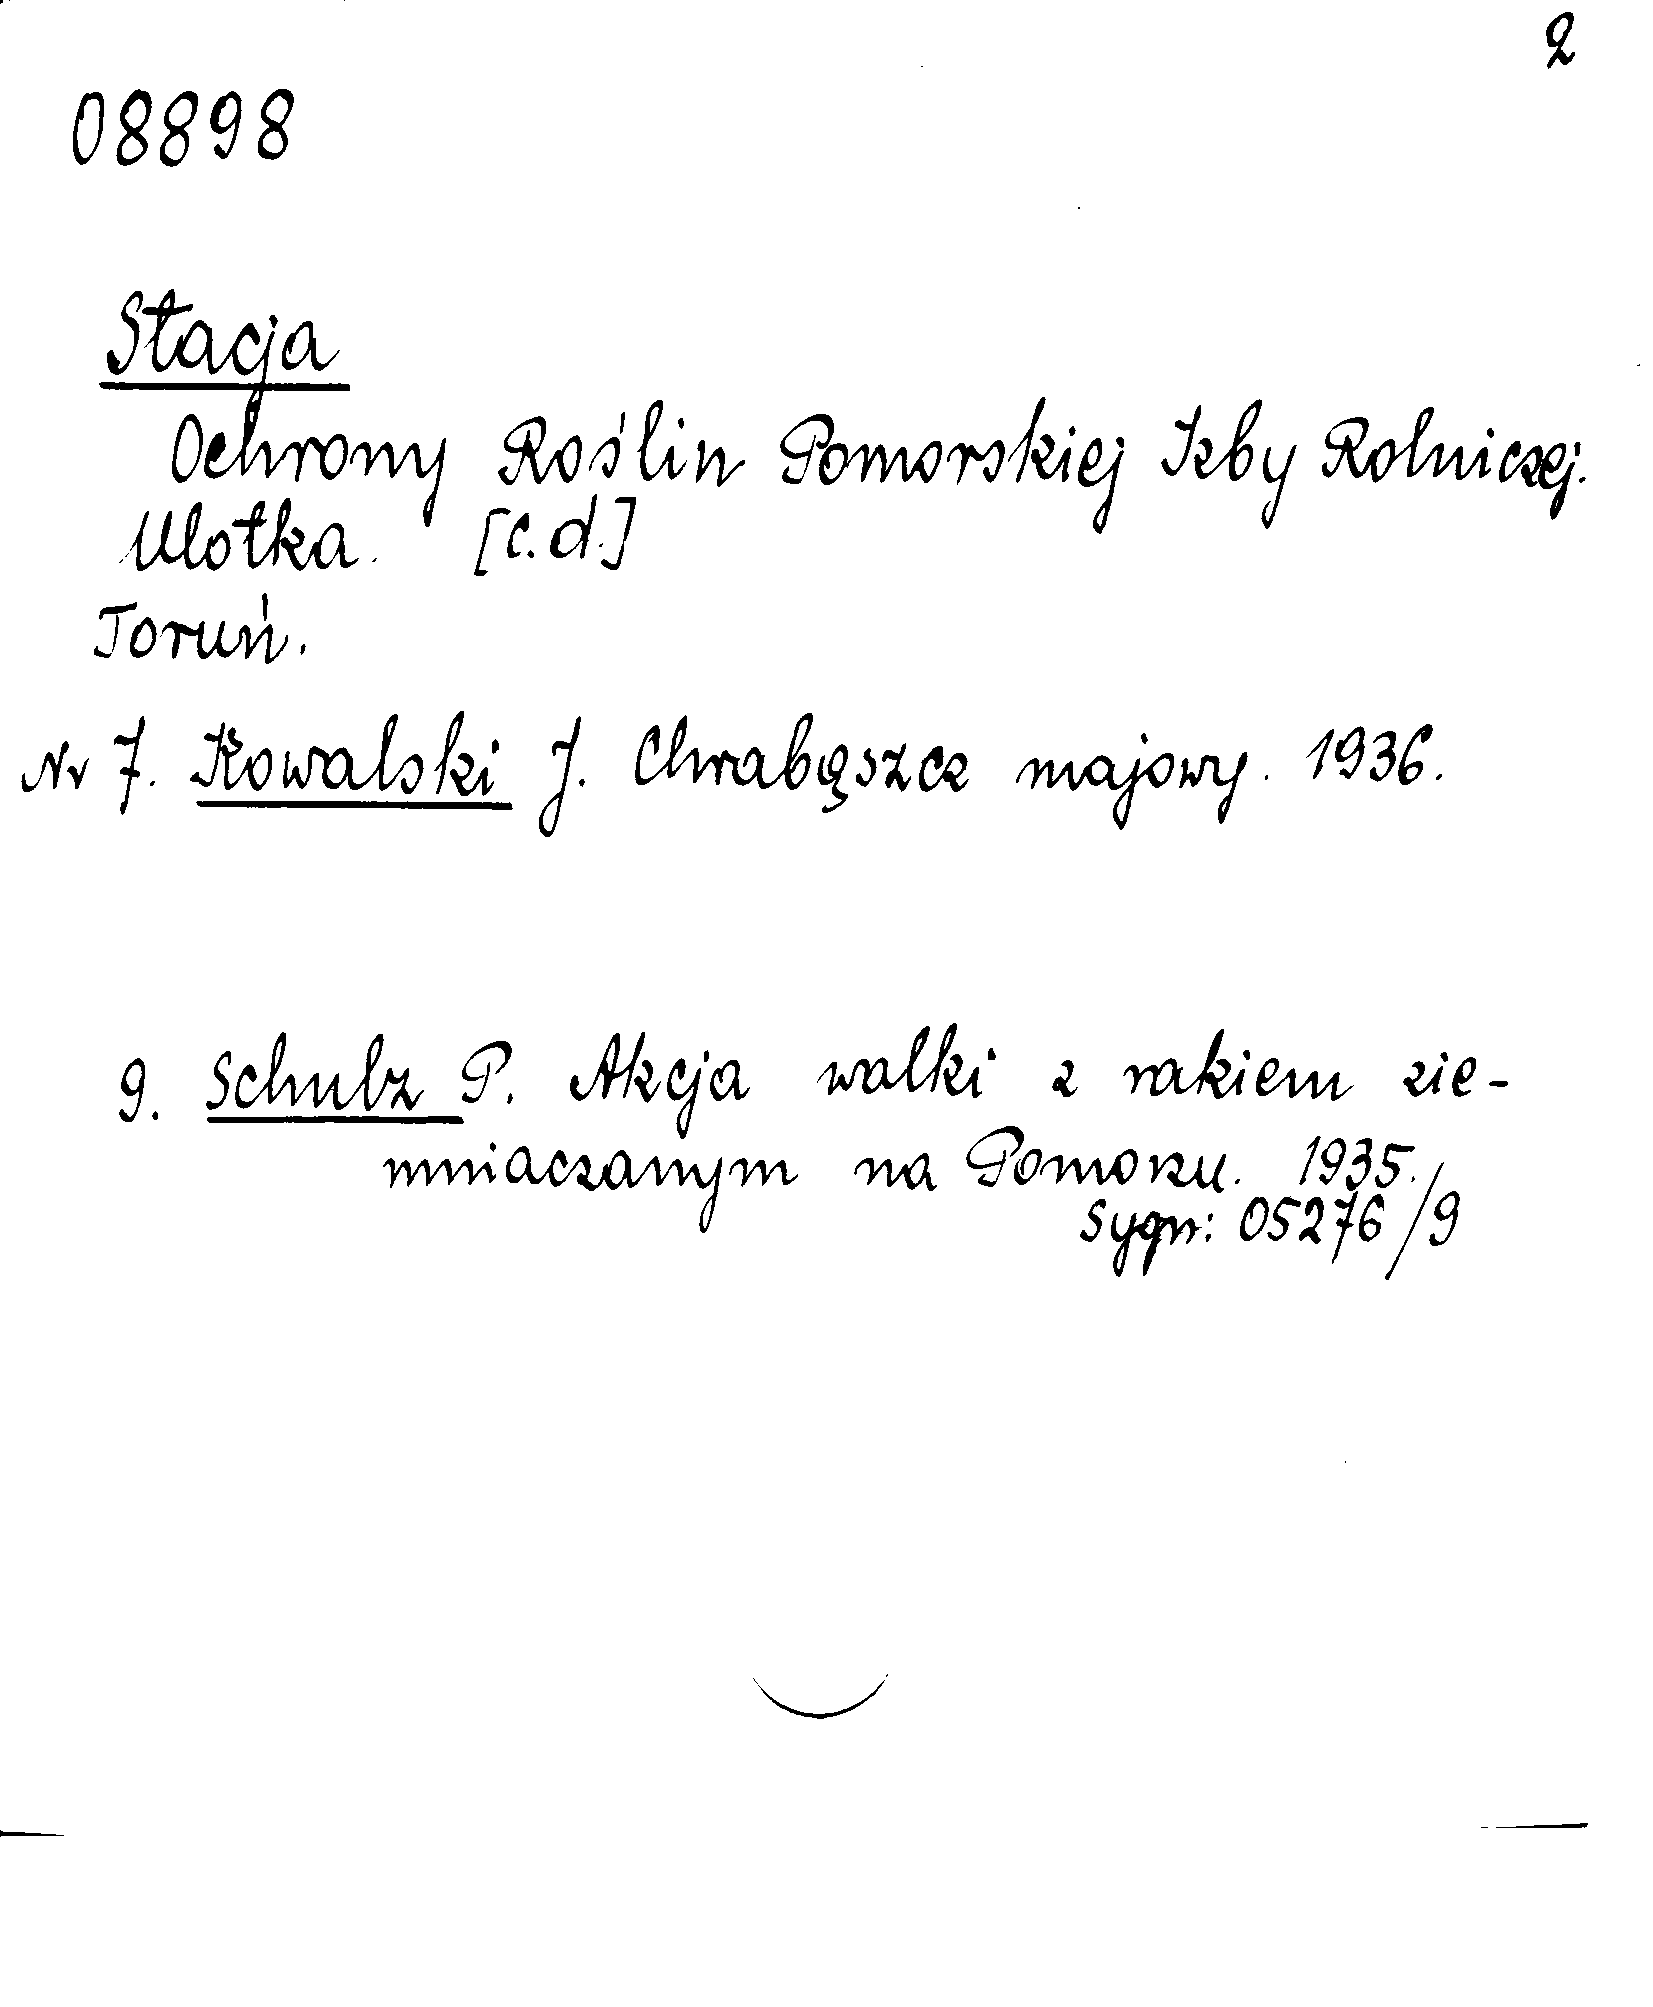 2
08898
Stacja
Ochrony Roślin Pomorskiej Izby Rolniczej.
Ulotka. [c.d.]
Toruń.
Nr 7. Kowalski J. Chrabąszcz majowy. 1936.
9. Schulz P. Akcja walki z rakiem zie-
mniaczanym na Pomorzu. 1935.
Sygn: 05276/9